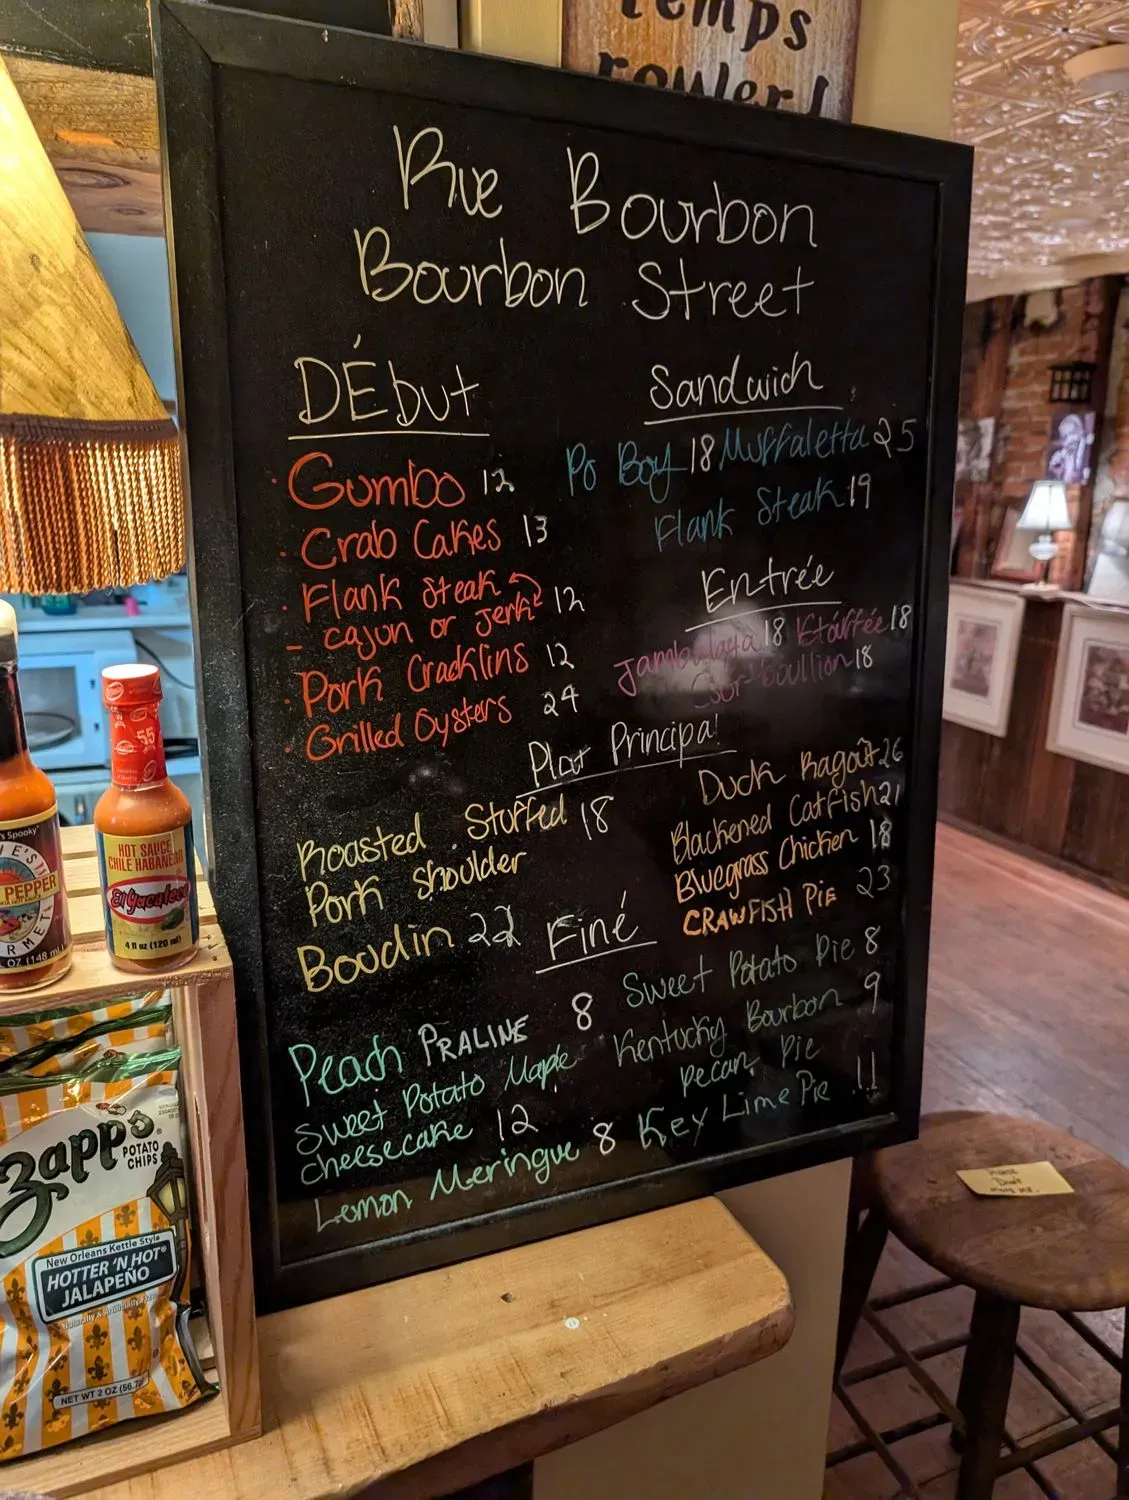 temps
rouler!
Rue Bourbon
Bourbon Street
DÉbut
· Gumbo 12
· Crab Cakes 13
· Flank Steak
- cajun or Jerk 12
· Pork Cracklins 12
· Grilled Oysters 24
Sandwich
Po Boy 18 Muffaletta 25
Flank Steak 19
Entrée
Jambalaya 18 Etóuffée 18
Cour-boullion 18
Plat Principal
Roasted Stuffed 18
Pork Shoulder
Boudin 22
Duck Ragoût 26
Blackened Catfish 21
Bluegrass Chicken 18
CRAWFISH PIE 23
Finé
Peach PRALINE 8
Sweet Potato Maple
cheesecake 12
Lemon Meringue 8
Sweet Potato Pie 8
Kentucky Bourbon 9
Pecan Pie
Key Lime Pie 11
PEPPER
55
HOT SAUCE
CHILE HABANERO
El Yucateco
4 fl oz (120 ml)
Zapp's
POTATO
CHIPS
New Orleans Kettle Style
HOTTER 'N HOT
JALAPEÑO
NET WT 2 OZ